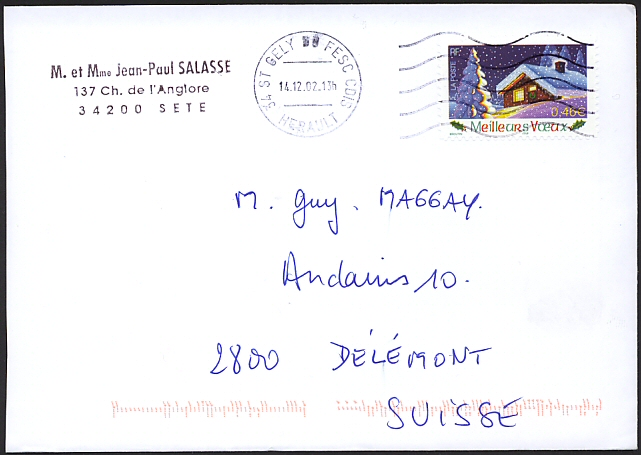 M. et Mme Jean-Paul SALASSE
137 Ch. de l'Anglore
34200 SETE
34 ST GELY DU FESC CDIS
14.12.02.13h
HERAULT
RF
LA POSTE
0,46€
Meilleurs Vœux
M. Guy. MAGGAY.
Andains 10.
2800 DÉLÉMONT
SUISSE